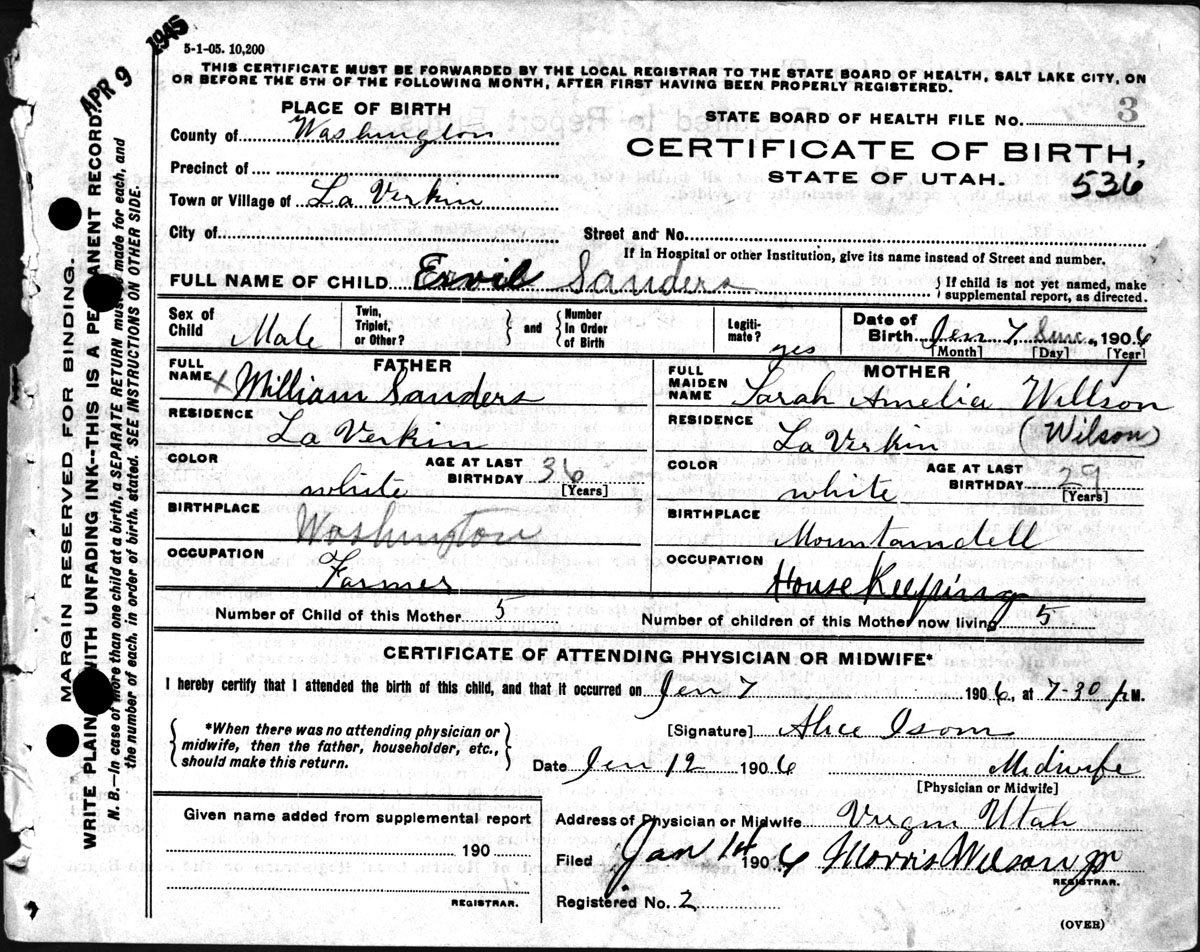 APR 9 1945
5-1-05. 10,200
THIS CERTIFICATE MUST BE FORWARDED BY THE LOCAL REGISTRAR TO THE STATE BOARD OF HEALTH, SALT LAKE CITY, ON
OR BEFORE THE 5TH OF THE FOLLOWING MONTH, AFTER FIRST HAVING BEEN PROPERLY REGISTERED.
PLACE OF BIRTH
County of Washington
Precinct of
Town or Village of La Verkin
City of
STATE BOARD OF HEALTH FILE NO. 3
CERTIFICATE OF BIRTH,
STATE OF UTAH. 536
Street and No.
If in Hospital or other Institution, give its name instead of Street and number.
FULL NAME OF CHILD Ervil Sanders
{ If child is not yet named, make
supplemental report, as directed.
Sex of Child Male
Twin, Triplet, or Other?
} and {
Number In Order of Birth
Legiti-mate? yes
Date of Birth Jen 7, 1906
[Month] [Day] [Year]
FATHER
FULL NAME X William Sanders
RESIDENCE
La Verkin
COLOR white
AGE AT LAST BIRTHDAY 36
[Years]
BIRTHPLACE
Washington
OCCUPATION
Farmer
MOTHER
FULL MAIDEN NAME Sarah Amelia Willson
RESIDENCE
La Verkin (Wilson)
COLOR white
AGE AT LAST BIRTHDAY 29
[Years]
BIRTHPLACE
Mountaindell
OCCUPATION
House Keeping
Number of Child of this Mother 5
Number of children of this Mother now living 5
CERTIFICATE OF ATTENDING PHYSICIAN OR MIDWIFE*
I hereby certify that I attended the birth of this child, and that it occurred on Jen 7 1906, at 7-30 p M.
{ *When there was no attending physician or
midwife, then the father, householder, etc.,
should make this return. }
[Signature] Alice Isom
Date Jen 12 1906 Midwife
[Physician or Midwife]
Given name added from supplemental report
190
REGISTRAR.
Address of Physician or Midwife Virgin Utah
Filed Jan 14 1906 Morris Wilson Jr
REGISTRAR.
Registered No. 2
(OVER)
MARGIN RESERVED FOR BINDING.
WRITE PLAIN WITH UNFADING INK--THIS IS A PE ANENT RECORD.
N. B.—In case of more than one child at a birth, a SEPARATE RETURN must be made for each, and
the number of each, in order of birth, stated. SEE INSTRUCTIONS ON OTHER SIDE.